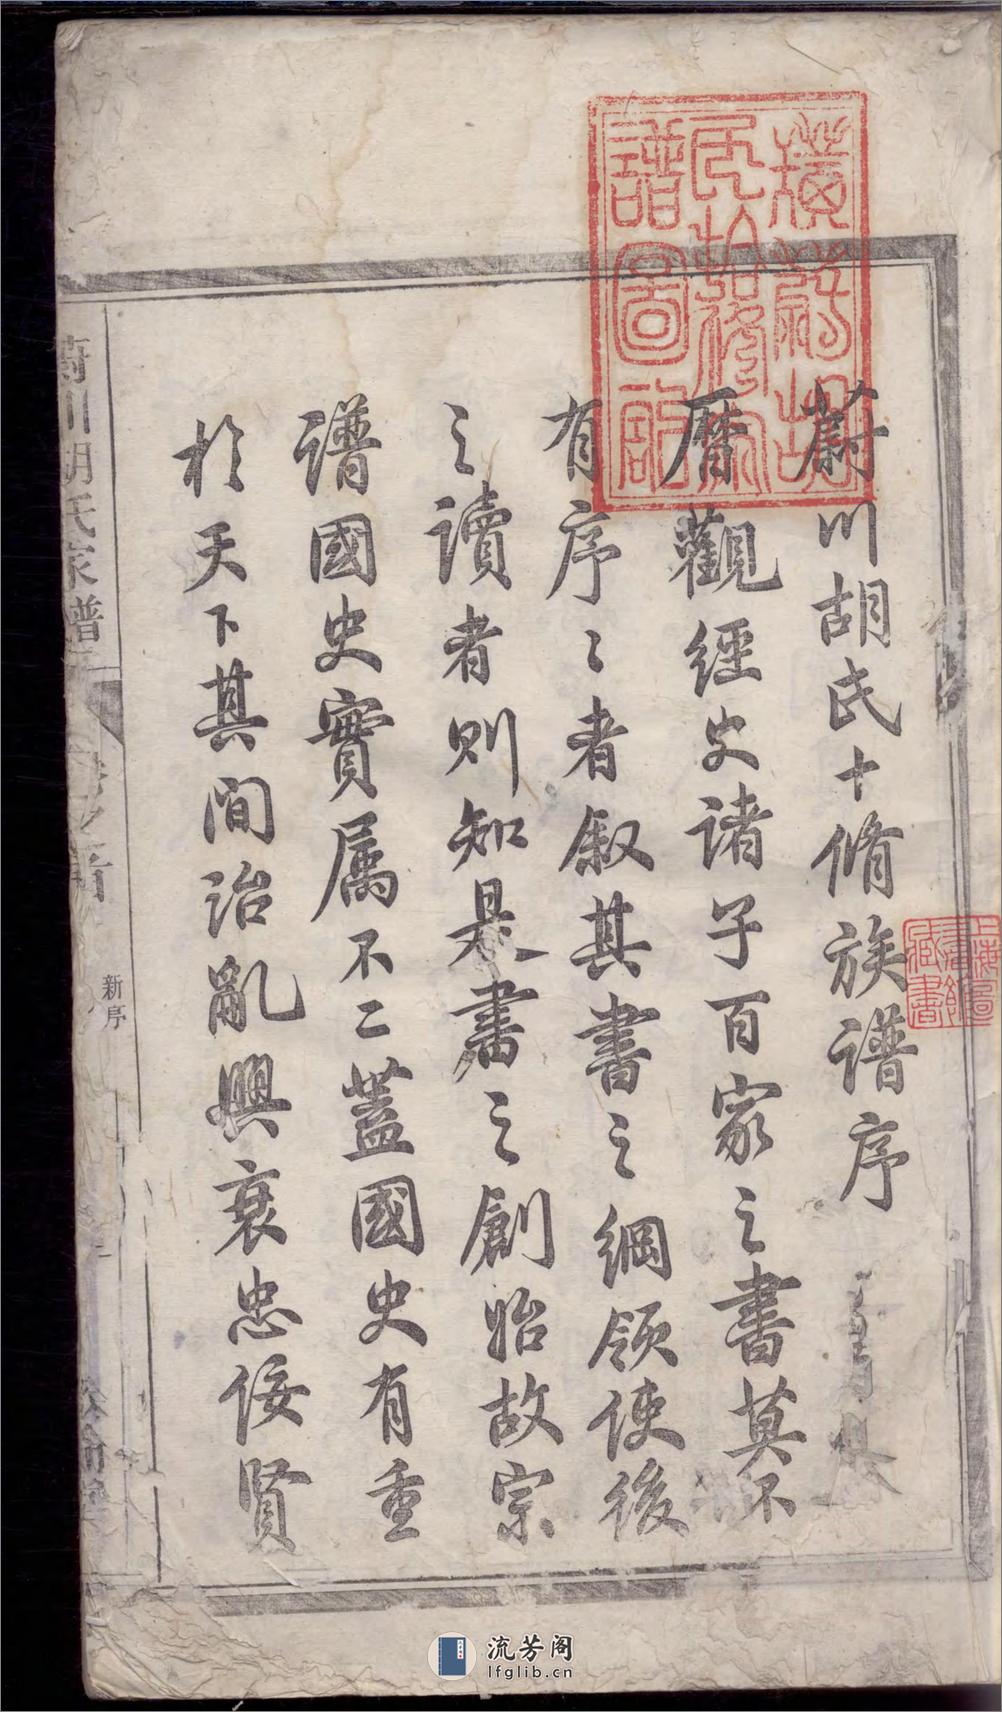 蔚川胡氏十脩族譜序
曆觀經史諸子百家之書莫不
有序〻者叙其書之綱領使後
之讀者則知是書之創始故宗
譜國史實属不二蓋國史有重
於天下其間治亂興衰忠佞賢
蔚川胡氏家譜
新序
上海圖
書館
藏書
流芳阁
lfglib.cn